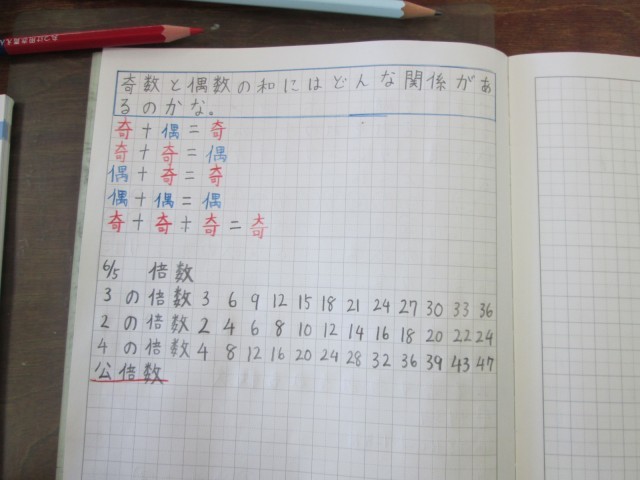 奇数と偶数の和にはどんな関係があ
るのかな。
奇+偶=奇
奇+奇=偶
偶+奇=奇
偶+偶=偶
奇+奇+奇=奇
6/5 倍数
3の倍数 3 6 9 12 15 18 21 24 27 30 33 36
2の倍数 2 4 6 8 10 12 14 16 18 20 22 24
4の倍数 4 8 12 16 20 24 28 32 36 39 43 47
公倍数